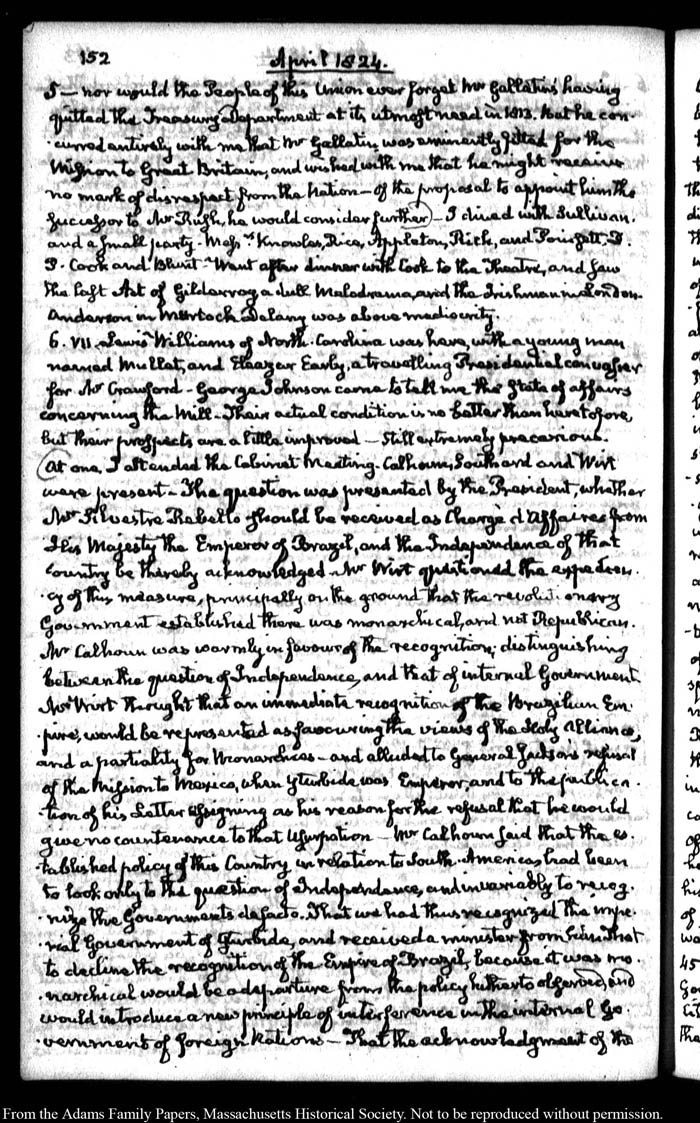 152
April 1824.
5 — nor would the People of this Union ever forget Mr Gallatin's having
quitted the Treasury Department at its utmost need in 1813. But he con-
-curred entirely with me that Mr Gallatin was eminently fitted for the
Mission to Great Britain, and wished with me that he might receive
no mark of disrespect from the Nation — of the proposal to appoint him the
Successor to Mr Rush, he would consider further — I dined with Sullivan.
and a small party. Messrs Knowles, Rice, Appleton, Rich, and Poinsett, D.
P. Cook and Blunt. Went after dinner with Cook to the Theatre, and saw
the last Act of Gilderoy a dull Melodrama, and the Irishman in London.
Anderson in Murtoch Delany was above mediocrity.
6. VII. Lewis Williams of North-Carolina was here, with a young man
named Mullat, and Eleazar Early, a travelling Presidential canvasser
for Mr Crawford — George Johnson came to tell me the State of affairs
concerning the Mill — Their actual condition is no better than heretofore,
but their prospects are a little improved — Still extremely precarious.
At one, I attended the Cabinet Meeting. Calhoun, Southard and Wirt
were present — The question was presented by the President, whether
Mr Silvestre Rebello should be received as Chargé d'Affaires from
His Majesty the Emperor of Brazil, and the Independence of that
Country be thereby acknowledged — Mr Wirt questioned the expedien-
-cy of this measure, principally on the ground that the revolutionary
Government established there was monarchical, and not Republican.
Mr Calhoun was warmly in favour of the recognition; distinguishing
between the question of Independence, and that of internal Government.
Mr Wirt thought that an immediate recognition of the Brazilian Em-
-pire, would be represented as favouring the views of the Holy Alliance,
and a partiality for Monarchies — and alluded to General Jackson's refusal
of the Mission to Mexico, when Yturbide was Emperor, and to the publica-
-tion of his Letter assigning as his reason for the refusal that he would
give no countenance to that usurpation — Mr Calhoun said that the es-
-tablished policy of this Country in relation to South-America, had been
to look only to the question of Independence, and invariably to recog-
-nize the Governments de facto. That we had thus recognized the impe-
-rial Government of Iturbide, and received a minister from him. That
to decline the recognition of the Empire of Brazil, because it was mo-
-narchical would be a departure from the policy hitherto observed, and
would introduce a new principle of interference in the internal Go-
-vernment of foreign Nations — That the acknowledgment of the
From the Adams Family Papers, Massachusetts Historical Society. Not to be reproduced without permission.